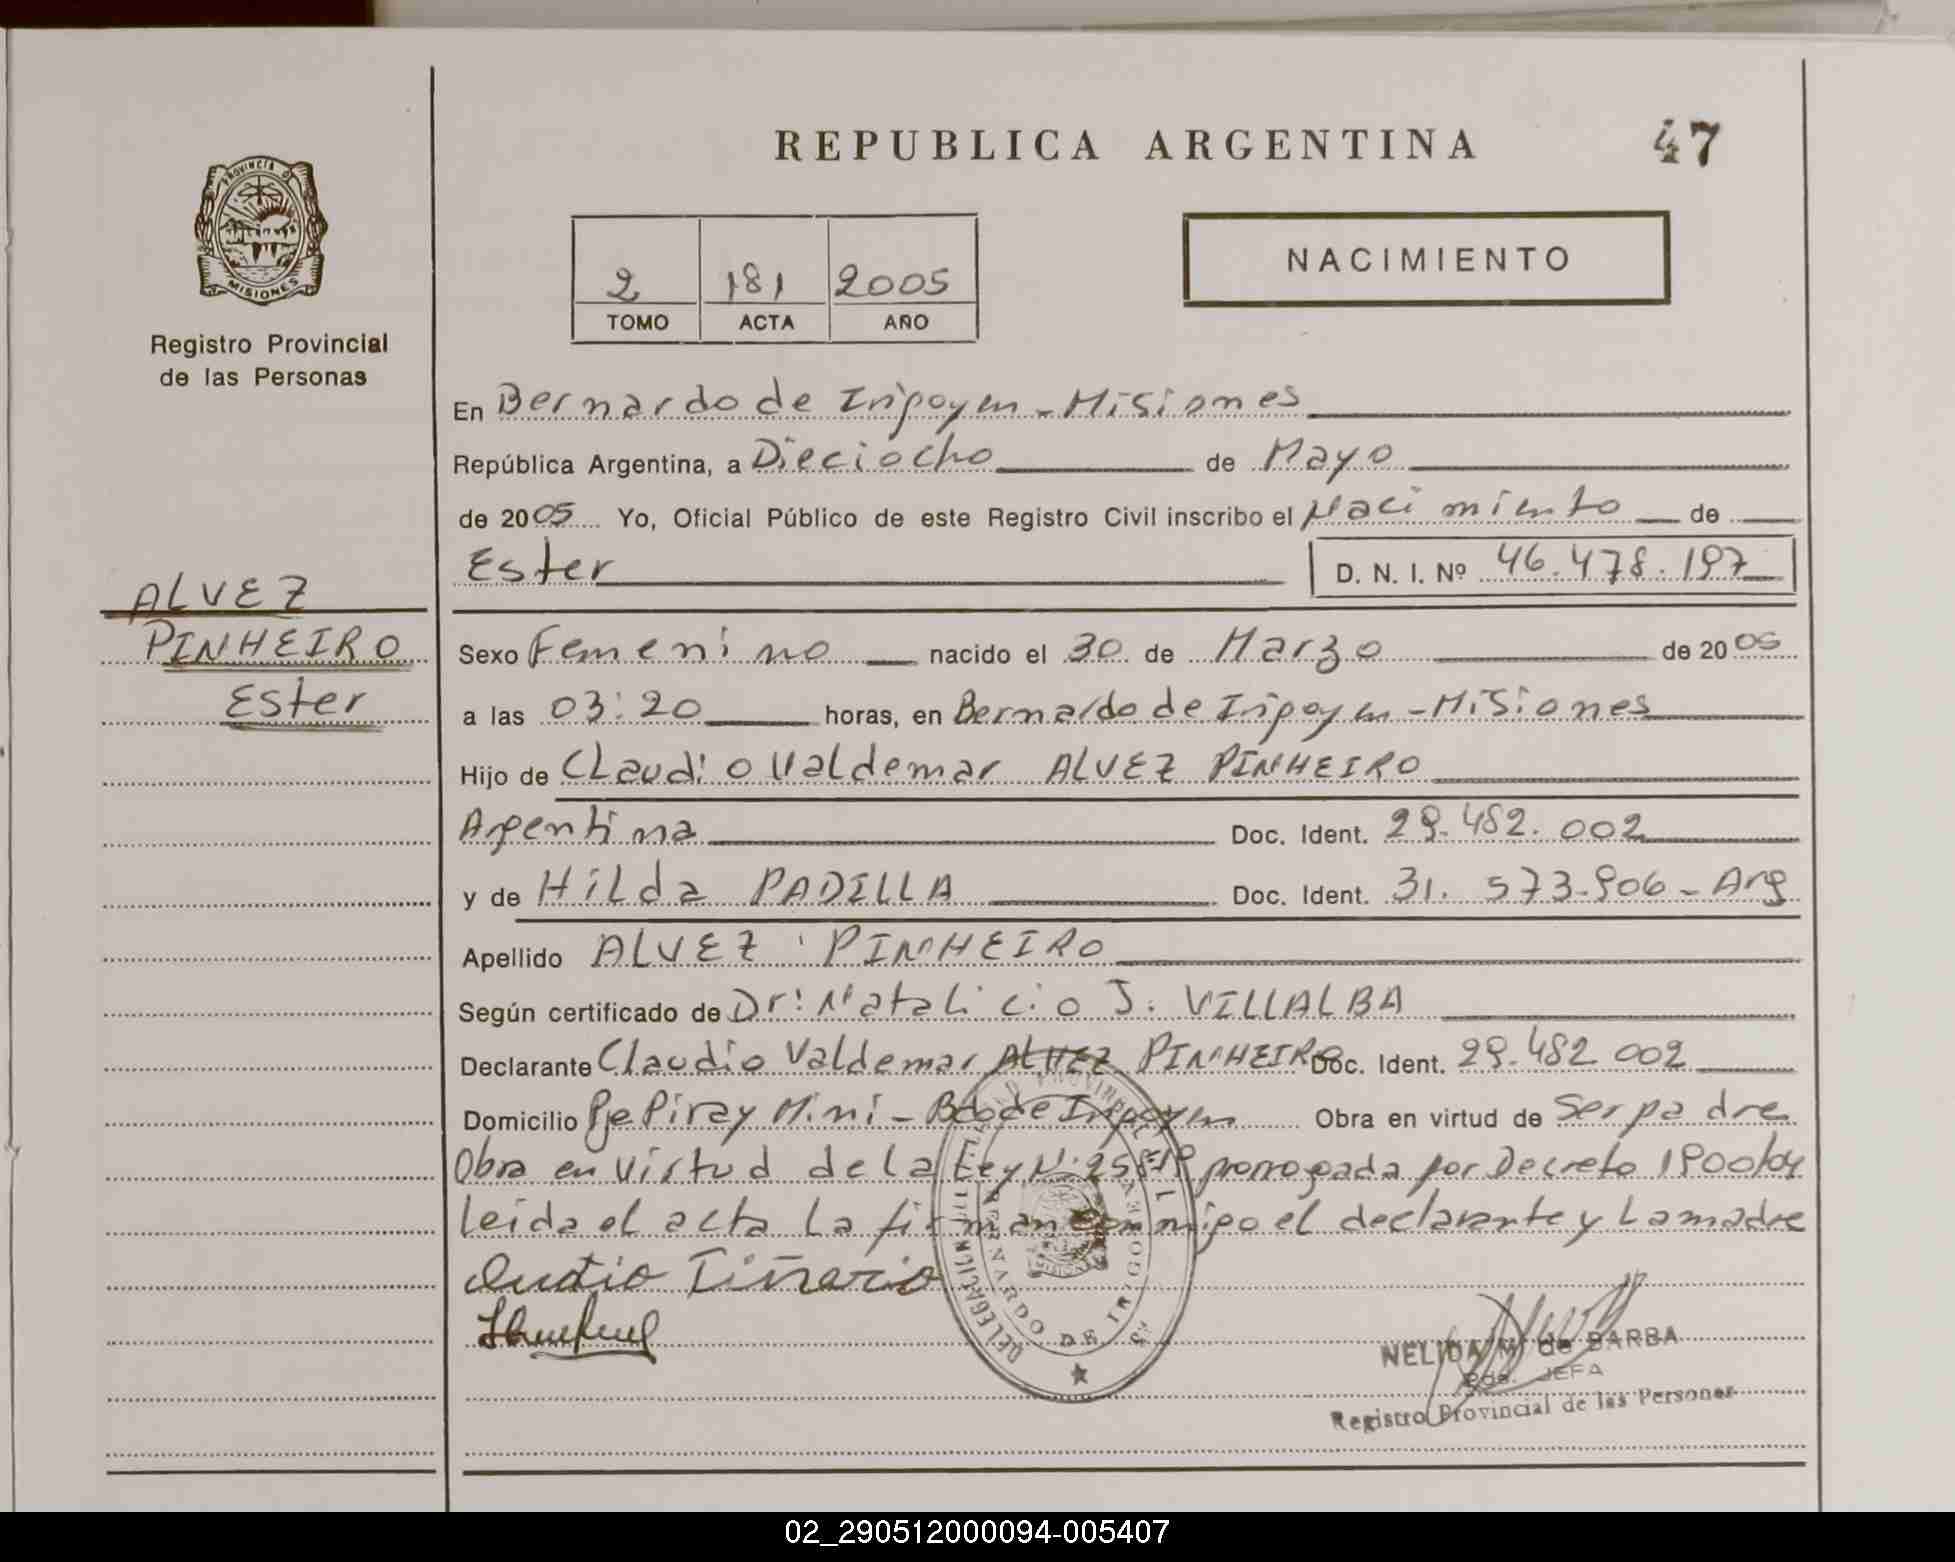 REPUBLICA ARGENTINA
47
PROVINCIA DE
MISIONES
Registro Provincial
de las Personas
2 181 2005
TOMO ACTA AÑO
NACIMIENTO
En Bernardo de Irigoyen - Misiones
República Argentina, a Dieciocho de Mayo
de 2005 Yo, Oficial Público de este Registro Civil inscribo el Nacimiento de
Ester D. N. I. Nº 46.478.197
ALVEZ
PINHEIRO
Ester
Sexo Femenino nacido el 30 de Marzo de 2005
a las 03:20 horas, en Bernardo de Irigoyen - Misiones
Hijo de Claudio Valdemar ALVEZ PINHEIRO
Argentina Doc. Ident. 29.482.002
y de Hilda PADILLA Doc. Ident. 31.573.906 - Arg
Apellido ALVEZ PINHEIRO
Según certificado de Dr: Natalicio J. VILLALBA
Declarante Claudio Valdemar ALVEZ PINHEIRO Doc. Ident. 29.482.002
Domicilio Pje Piray Mini - Bdo de Irigoyen Obra en virtud de Ser padre
Obra en virtud de la Ley Nº 25819 prorrogada por Decreto 1900/04
leida el acta la firman conmigo el declarante y la madre
BERNARDO DE IRIGOYEN
NELIDA M. de BARBA
JEFA
Registro Provincial de las Personas
02_290512000094-005407